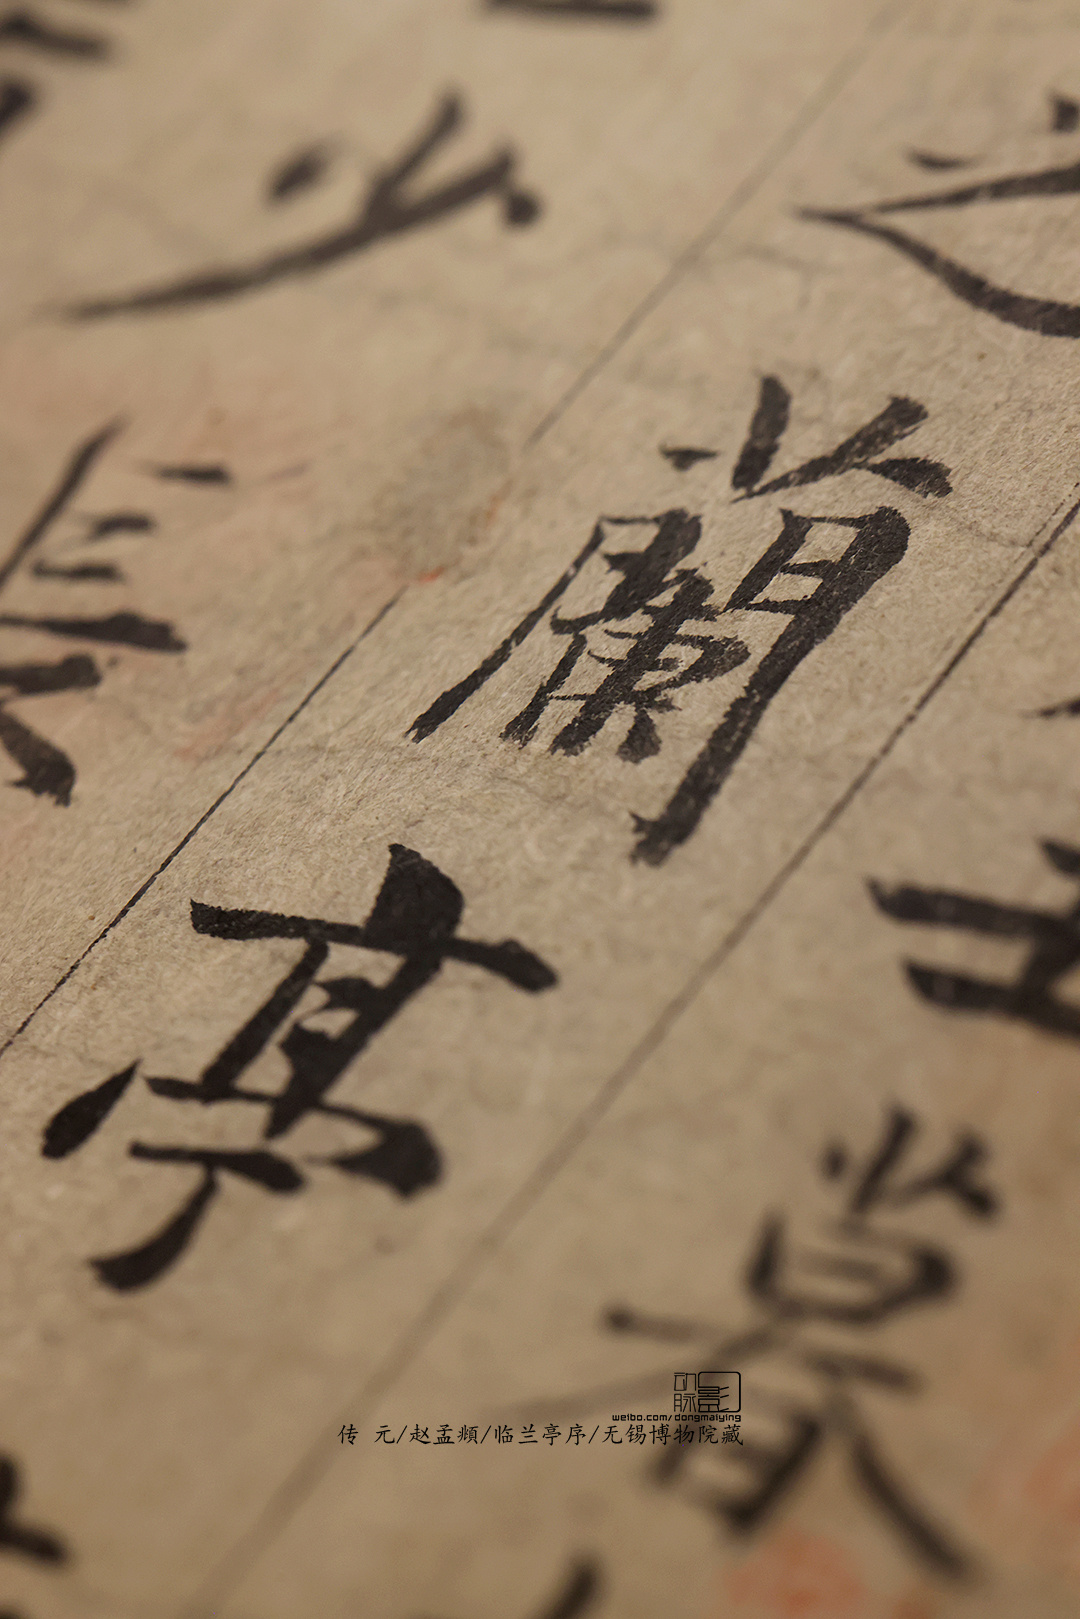 丑暮
之蘭亭
少長
动脉影
weibo.com/dongmaiying
传 元/赵孟頫/临兰亭序/无锡博物院藏